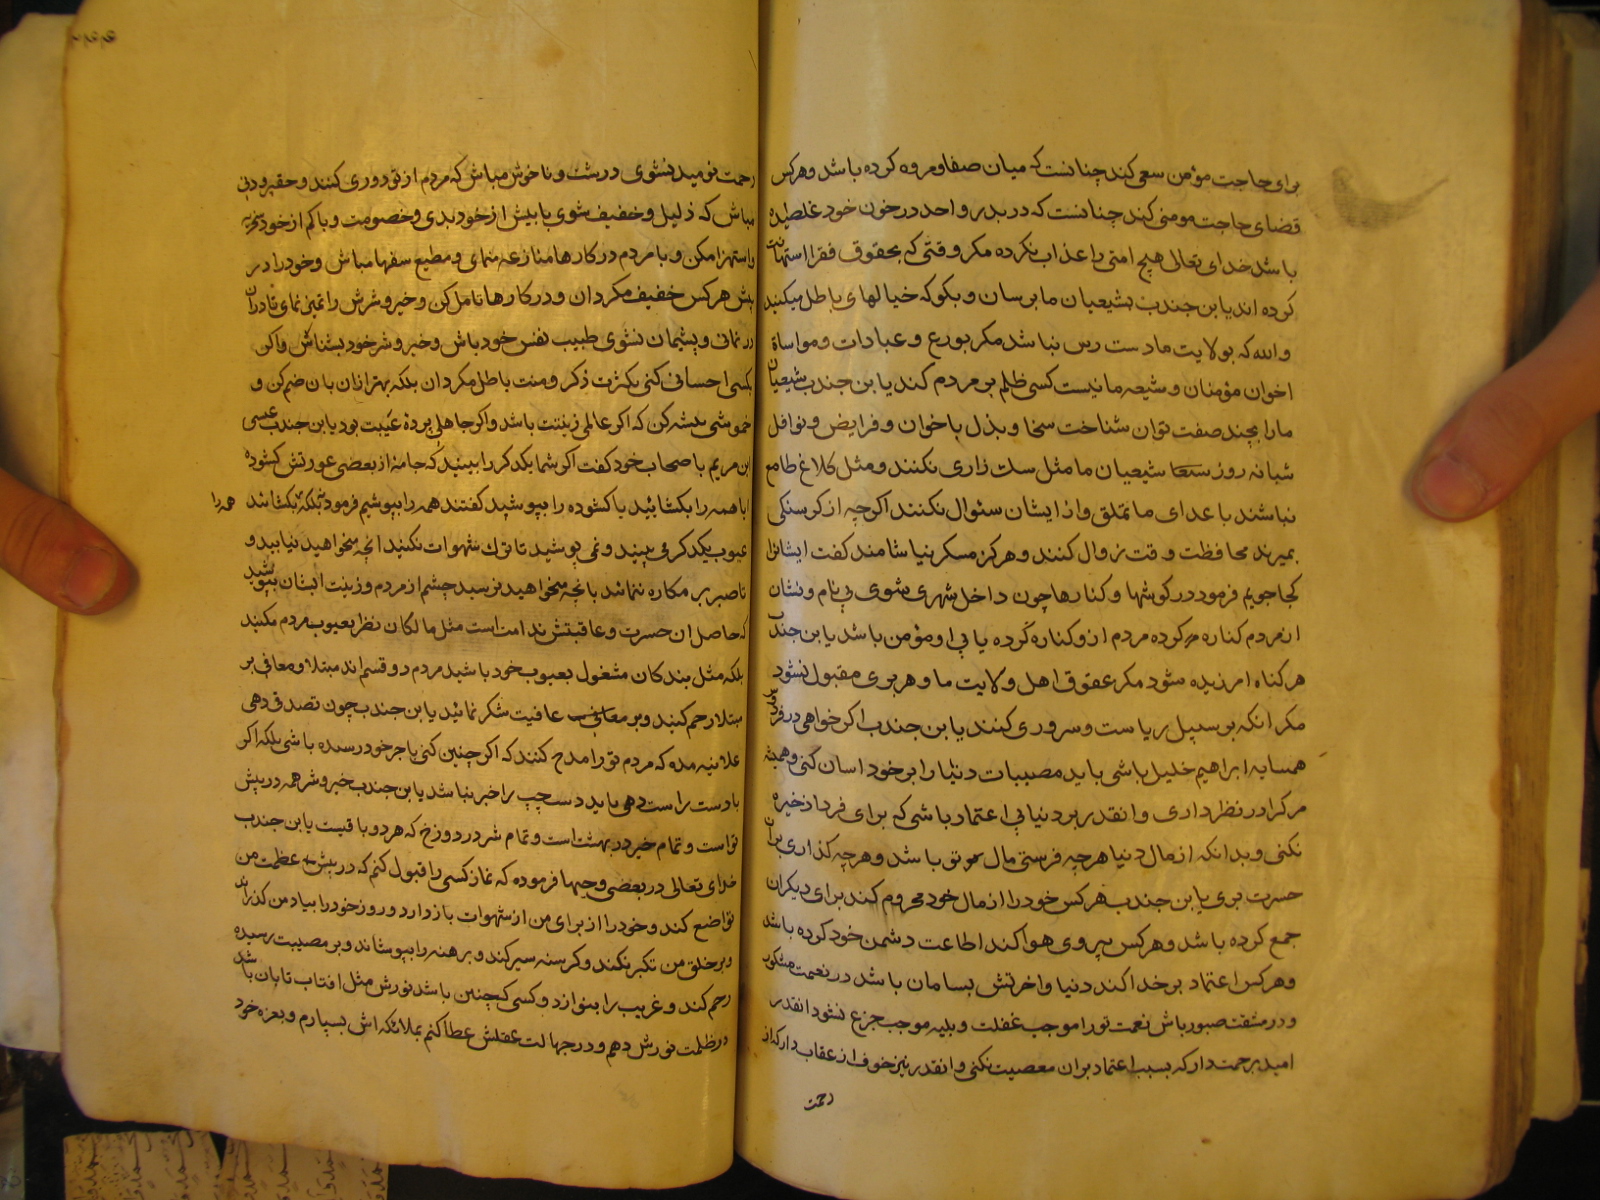 برای حاجت مؤمن سعی کند چنانست که میان صفا و مروه کرده باشد و هرکس
قضای حاجت مومنی کند چنانست که در بدر و احد در خون خود غلطیده
باشد خدای تعالی هیچ امتی را عذاب نکرده مکر وقتی که بحقوق فقرا استهانت
کرده اند یا بن جندب بشیعیان ما برسان و بکو که خیالهای باطل میکنید
والله که بولایت ما دست رس نباشد مکر بورع و عبادات و مواساة
اخوان مؤمنان و شیعه ما نیست کسی ظلم بر مردم کند یا بن جندب شیعیان
ما را بچند صفت توان شناخت سخا و بذل باخوان و فرایض و نوافل
شبانه روز شیعیان ما مثل سک زاری نکنند و مثل کلاغ طامع
نباشند با عدای ما تملق و از ایشان سئوال نکنند اکرچه از کرسنکی
بمیرند محافظت وقت زوال کنند و هرکز مسکر نیاشامند کفت ایشانرا
کجا جویم فرمود در کوشها و کنارها چون داخل شهری شوی بی نام و نشان
از مردم کناره کرده مردم ازو کناره کرده یا بی او مؤمن باشد یا بن جندب
هر کناه امرزیده شود مکر عقوق اهل ولایت ما و هر بری مقبول نشود
مکر انکه بر سبیل ریاست و سروری کنند یا بن جندب اکر خواهی در فردوس
همسایه ابراهیم خلیل باشی باید مصیبات دنیا را بر خود اسان کنی و همیشه
مرک را در نظر داری و انقدر بر دنیا بی اعتماد باشی که برای فردا ذخیره
نکنی و بدانکه از مال دنیا هرچه فرستی مال تو باشد و هرچه کذاری بران
حسرت بری یا بن جندب هرکس خود را از مال خود محروم کند برای دیکران
جمع کرده باشد و هرکس پیروی هوا کند اطاعت دشمن خود کرده باشد
و هرکس اعتماد بر خدا کند دنیا و اخرتش بسامان باشد در نعمت مشکور
و در مشقت صبور باش نعمت تو را موجب غفلت و بلیه موجب جزع نشود انقدر
امید برحمت دار که بسبب اعتماد بران معصیت نکنی و انقدر نیز خوف از عقاب دار که از
رحمت
رحمت نومید نشوی درشت و ناخوش مباش که مردم از تو دوری کنند و حقیر و دنی
مباش که ذلیل و خفیف شوی با بیش از خود بدی و خصومت و با کم از خود سخریه
و استهزا مکن و با مردم در کارها منازعه منمای و مطیع سفها مباش و خود را در
پیش هرکس خفیف مکردان و در کارها تامل کن و خیر و شرش را تمیز نمای تا دران
در نمانی و پشیمان نشوی طبیب نفس خود باش و خیر و شر خود بشناس و اکر
بکسی احسانی کنی بکثرت ذکر و منت باطل مکردان بلکه بهتر ازان بان ضم کن و
خموشی پیشه کن که اکر عالمی زینتت باشد و اکر جاهلی پردهٔ عیبت بود یا بن جندب عیسی
ابن مریم باصحاب خود کفت اکر شما یکدکر را ببینید که جامهٔ از بعضی عورتش کشوده
ایا همه را بکشائید یا کشوده را بپوشید کفتند همه را بپوشیم فرمود بلکه بکشائید همه را
عیوب یکدکر می بینید و نمی پوشید تا ترک شهوات نکنید انچه میخواهید نیابید و
تا صبر بر مکاره ننمائید بانچه میخواهید نرسید چشم از مردم و زینت ایشان بپوشید
که حاصل ان حسرت و عاقبتش ندامت است مثل مالکان نظر بعیوب مردم مکنید
بلکه مثل بندکان مشغول بعیوب خود باشید مردم دو قسم اند مبتلا و معافی بر
مبتلا رحم کنید و بر معافی عافیت شکر نمائید یا بن جندب چون تصدق دهی
علانیه مده که مردم تو را مدح کنند که اکر چنین کنی باجر خود رسیده باشی بلکه اکر
بادست راست دهی باید دست چپ را خبر نباشد یا بن جندب خیر و شر همه در پیش
تواست و تمام خیر در بهشت است و تمام شر در دوزخ که هر دو باقیست یا بن جندب
خدای تعالی در بعضی وحیها فرموده که نماز کسی را قبول کنم که در پیش عظمت من
تواضع کند و خود را از برای من از شهوات باز دارد و روز خود را بیاد من کذراند
و بر خلق من تکبر نکند و کرسنه سیر کند و برهنه را بپوشاند و بر مصیبت رسیده
رحم کند و غریب را بنوازد و کسی که چنین باشد نورش مثل افتاب تابان باشد
در ظلمت نورش دهم و در جهالت عقلش عطا کنم بملائکه اش بسپارم و بعزه خود